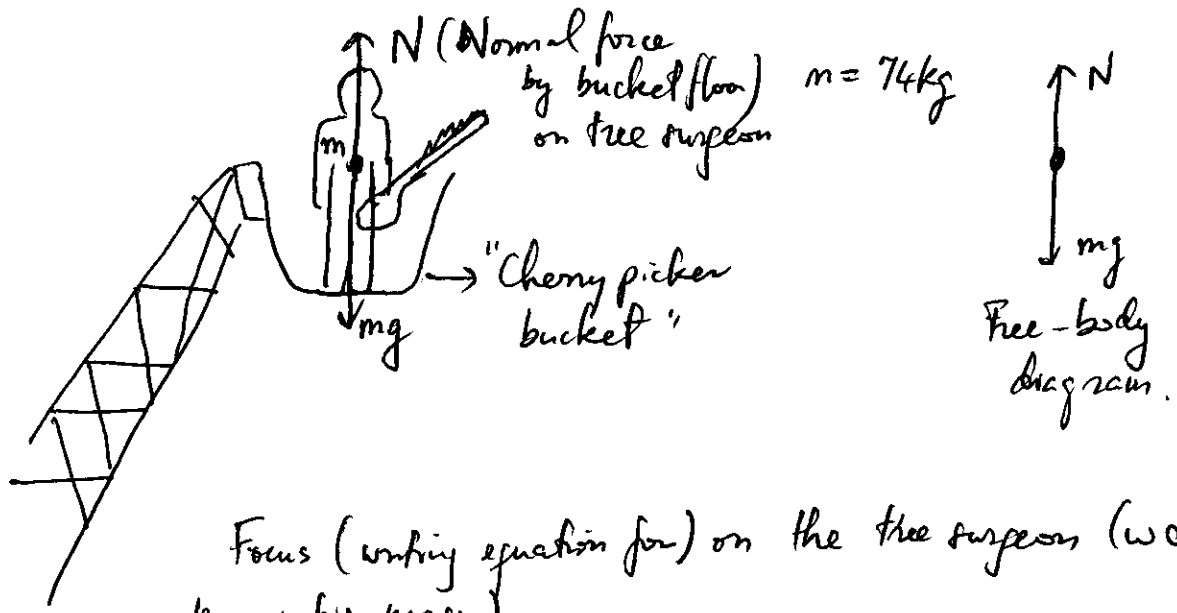 N (Normal force
by bucket floor)
on tree surgeon
m = 74kg
N
m
"Cherry picker
bucket"
mg
mg
Free-body
diagram.
Focus (writing equation for) on the tree surgeon (w